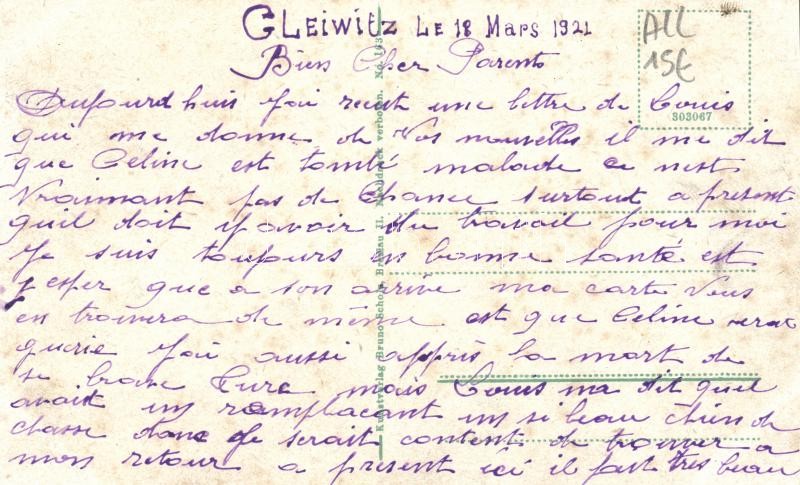 GLeiwitz Le 18 Mars 1921
Bien Cher Parents
Aujourd huis J'ai recut une lettre de Louis
qui me donne de Vos nouvelles il me dit
que Celine est tombé malade ce nest
Vraimant pas de Chance surtout a present
quil doit y avoir du travail pour moi
Je suis toujours en bonne santé est
J'esper que a son arrivé ma carte Vous
en trouvera de même est que Celine serat
querie J'ai aussi appris la mort de
se brave Turc mais Louis ma dit quil
avait un ramplacant un se beau chien de
chasse donc Je serait content de trouver a
mon retour a present ici il fait très beau
All
15€
303067
Kunstverlag Bruno Scholz, Breslau II. Nachdruck verboten. No. 163